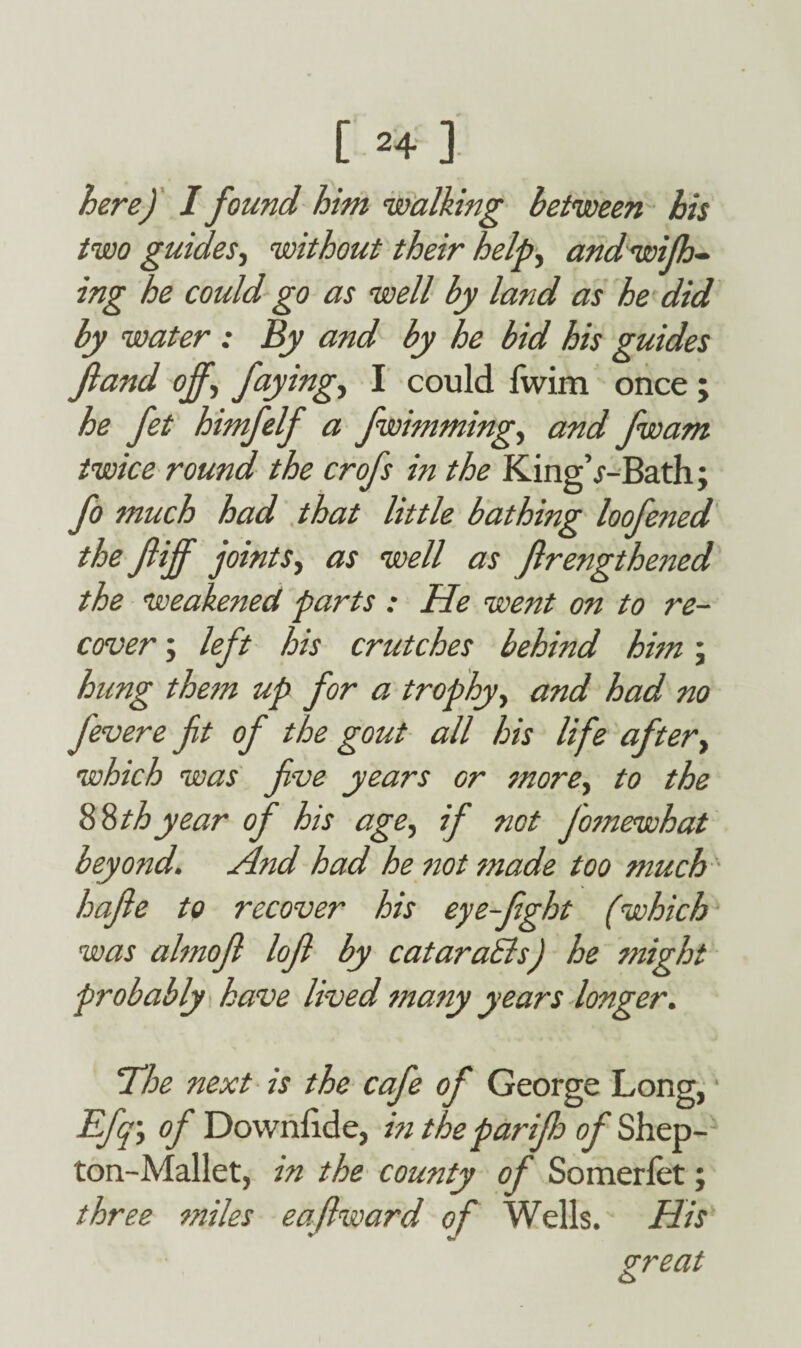 [ 24 ]
here) I found him walking between his
two guides, without their help, and wiſh-
ing he could go as well by land as he did
by water : By and by he bid his guides
ſtand off, ſaying, I could ſwim once ;
he ſet himſelf a ſwimming, and ſwam
twice round the croſs in the King's-Bath;
ſo much had that little bathing looſened
the ſtiff joints, as well as ſtrengthened
the weakened parts : He went on to re-
cover ; left his crutches behind him ;
hung them up for a trophy, and had no
ſevere fit of the gout all his life after,
which was five years or more, to the
88th year of his age, if not ſomewhat
beyond. And had he not made too much
haſte to recover his eye-ſight (which
was almoſt loſt by cataracts) he might
probably have lived many years longer.
The next is the caſe of George Long,
Eſq; of Downſide, in the pariſh of Shep-
ton-Mallet, in the county of Somerſet ;
three miles eaſtward of Wells. His
great